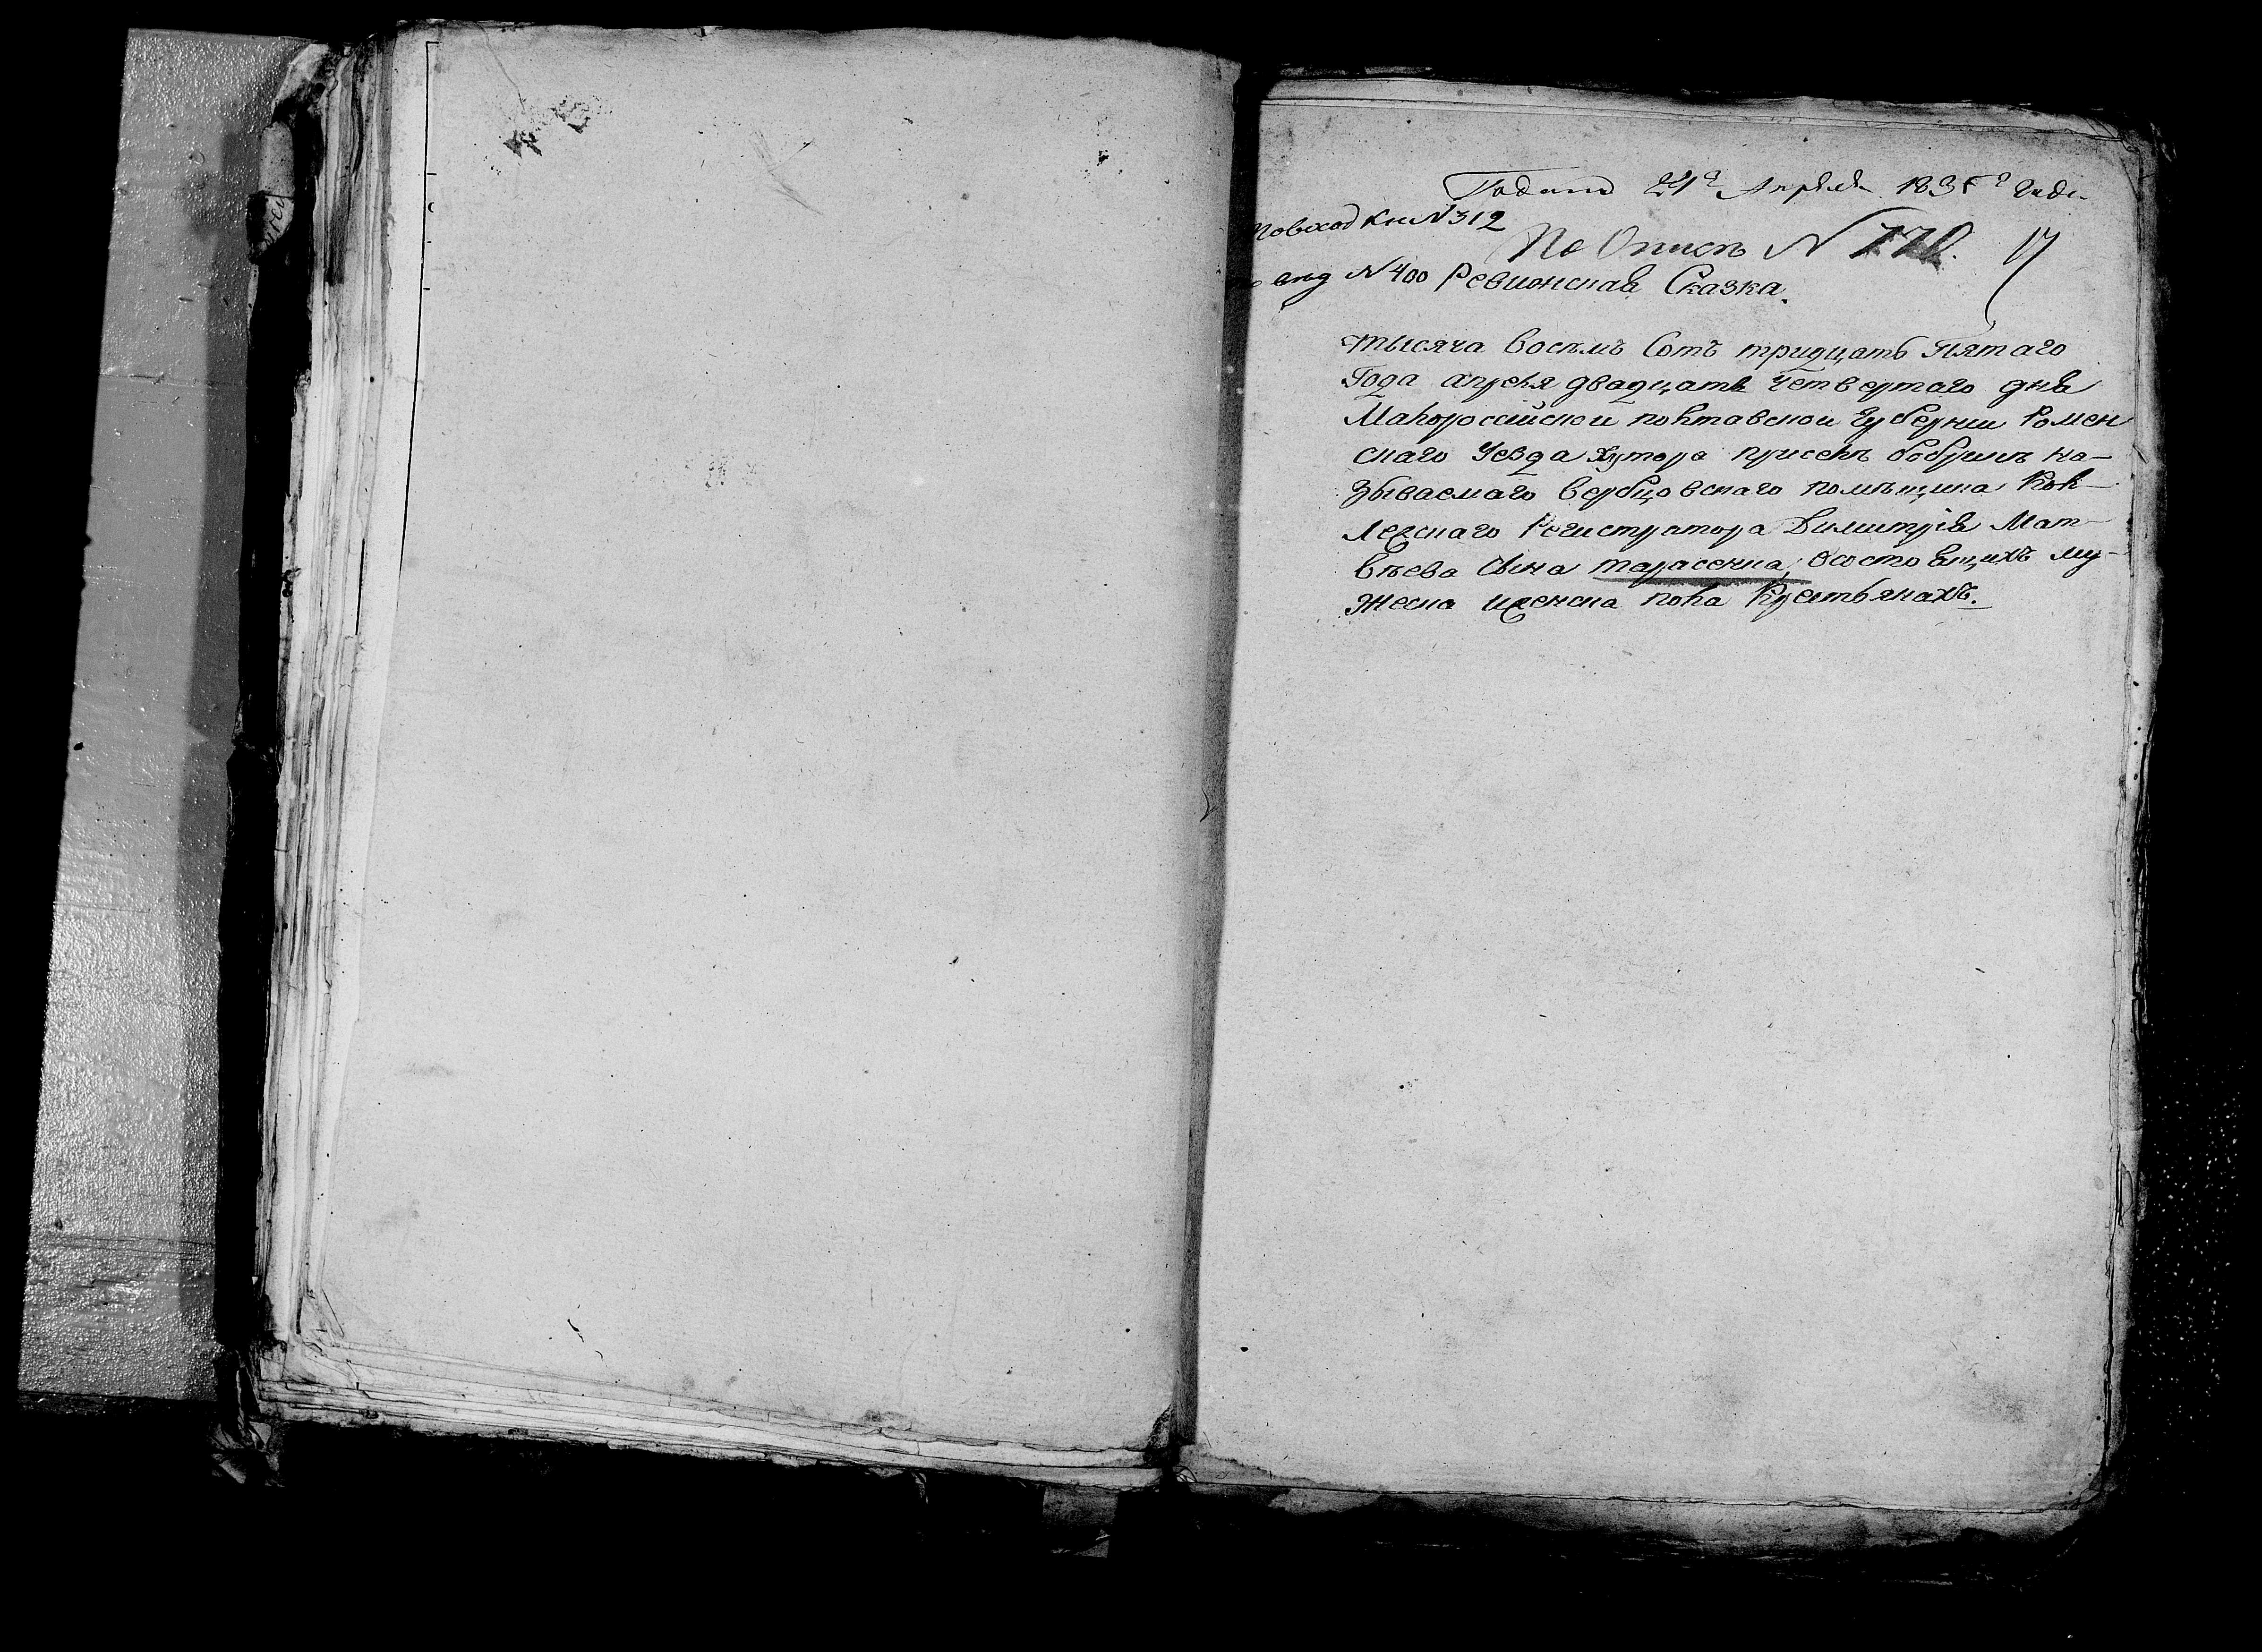 Подана 24го Апреля 1835го года
По вход кн N 312
По Описи N 770. 17
N 400 Ревизская Сказка.
тысяча восемъ Сотъ тридцать Пятаго
Года апреля двадцать четвертаго дня
Малороссийской полтавской Губернии Ромен
скаго Уезда Хутора при селе на-
зываемаго Вербцовскаго помещика Кол-
лежскаго Регистратора Димитрія Мат-
веева Сына тарасенка, Осостоящихъ му-
жеска иженска пола Крестьянахъ.